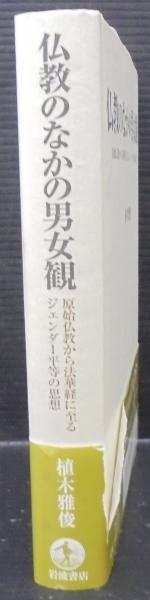 仏教のなかの男女観
原始仏教から法華経に至る
ジェンダー平等の思想
植木雅俊
岩波書店